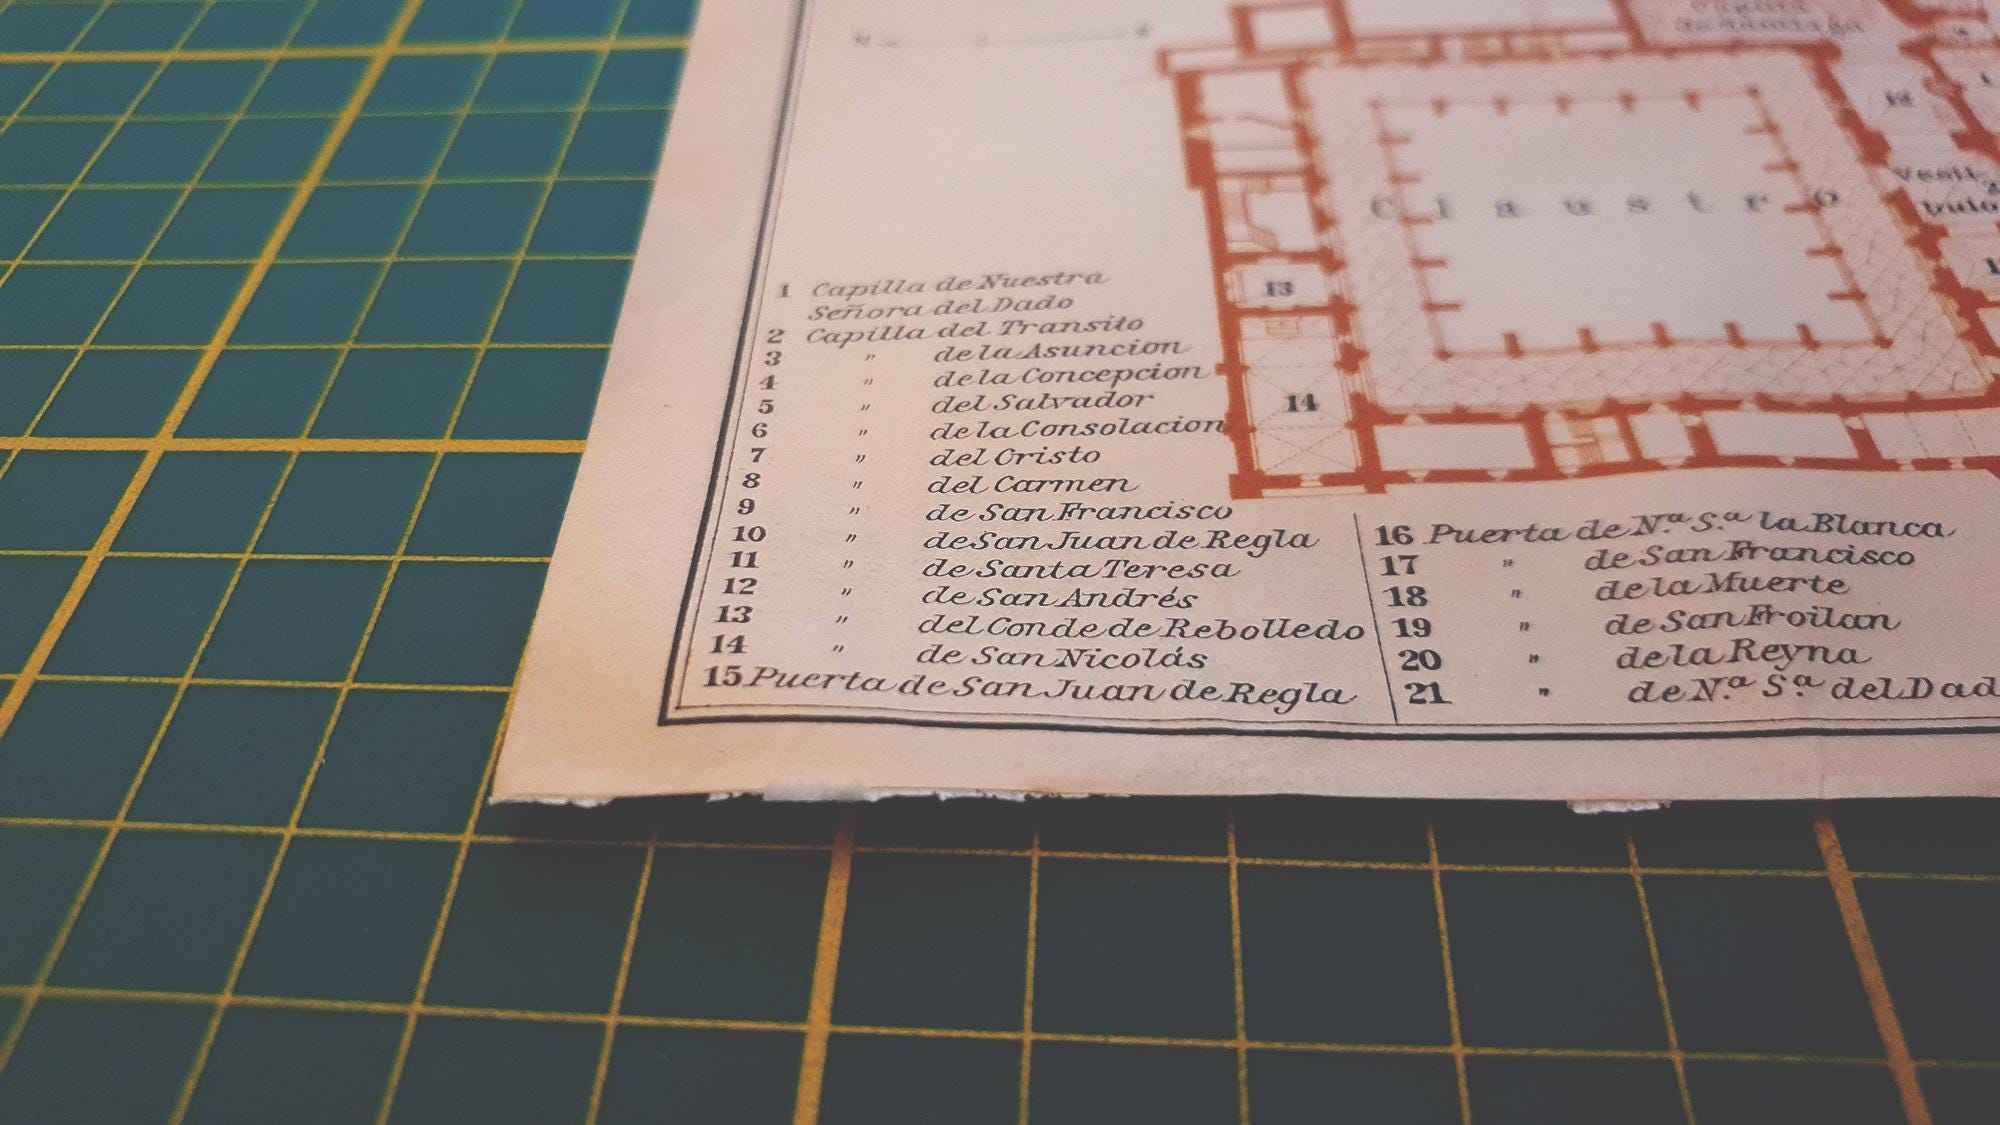 Claustro
12
13
14
1 Capilla de Nuestra
Señora del Dado
2 Capilla del Transito
3 " de la Asuncion
4 " de la Concepcion
5 " del Salvador
6 " de la Consolacion
7 " del Cristo
8 " del Carmen
9 " de San Francisco
10 " de San Juan de Regla
11 " de Santa Teresa
12 " de San Andrés
13 " del Conde de Rebolledo
14 " de San Nicolás
15 Puerta de San Juan de Regla
16 Puerta de N.ª S.ª la Blanca
17 " de San Francisco
18 " de la Muerte
19 " de San Froilan
20 " de la Reyna
21 " de N.ª S.ª del Dad